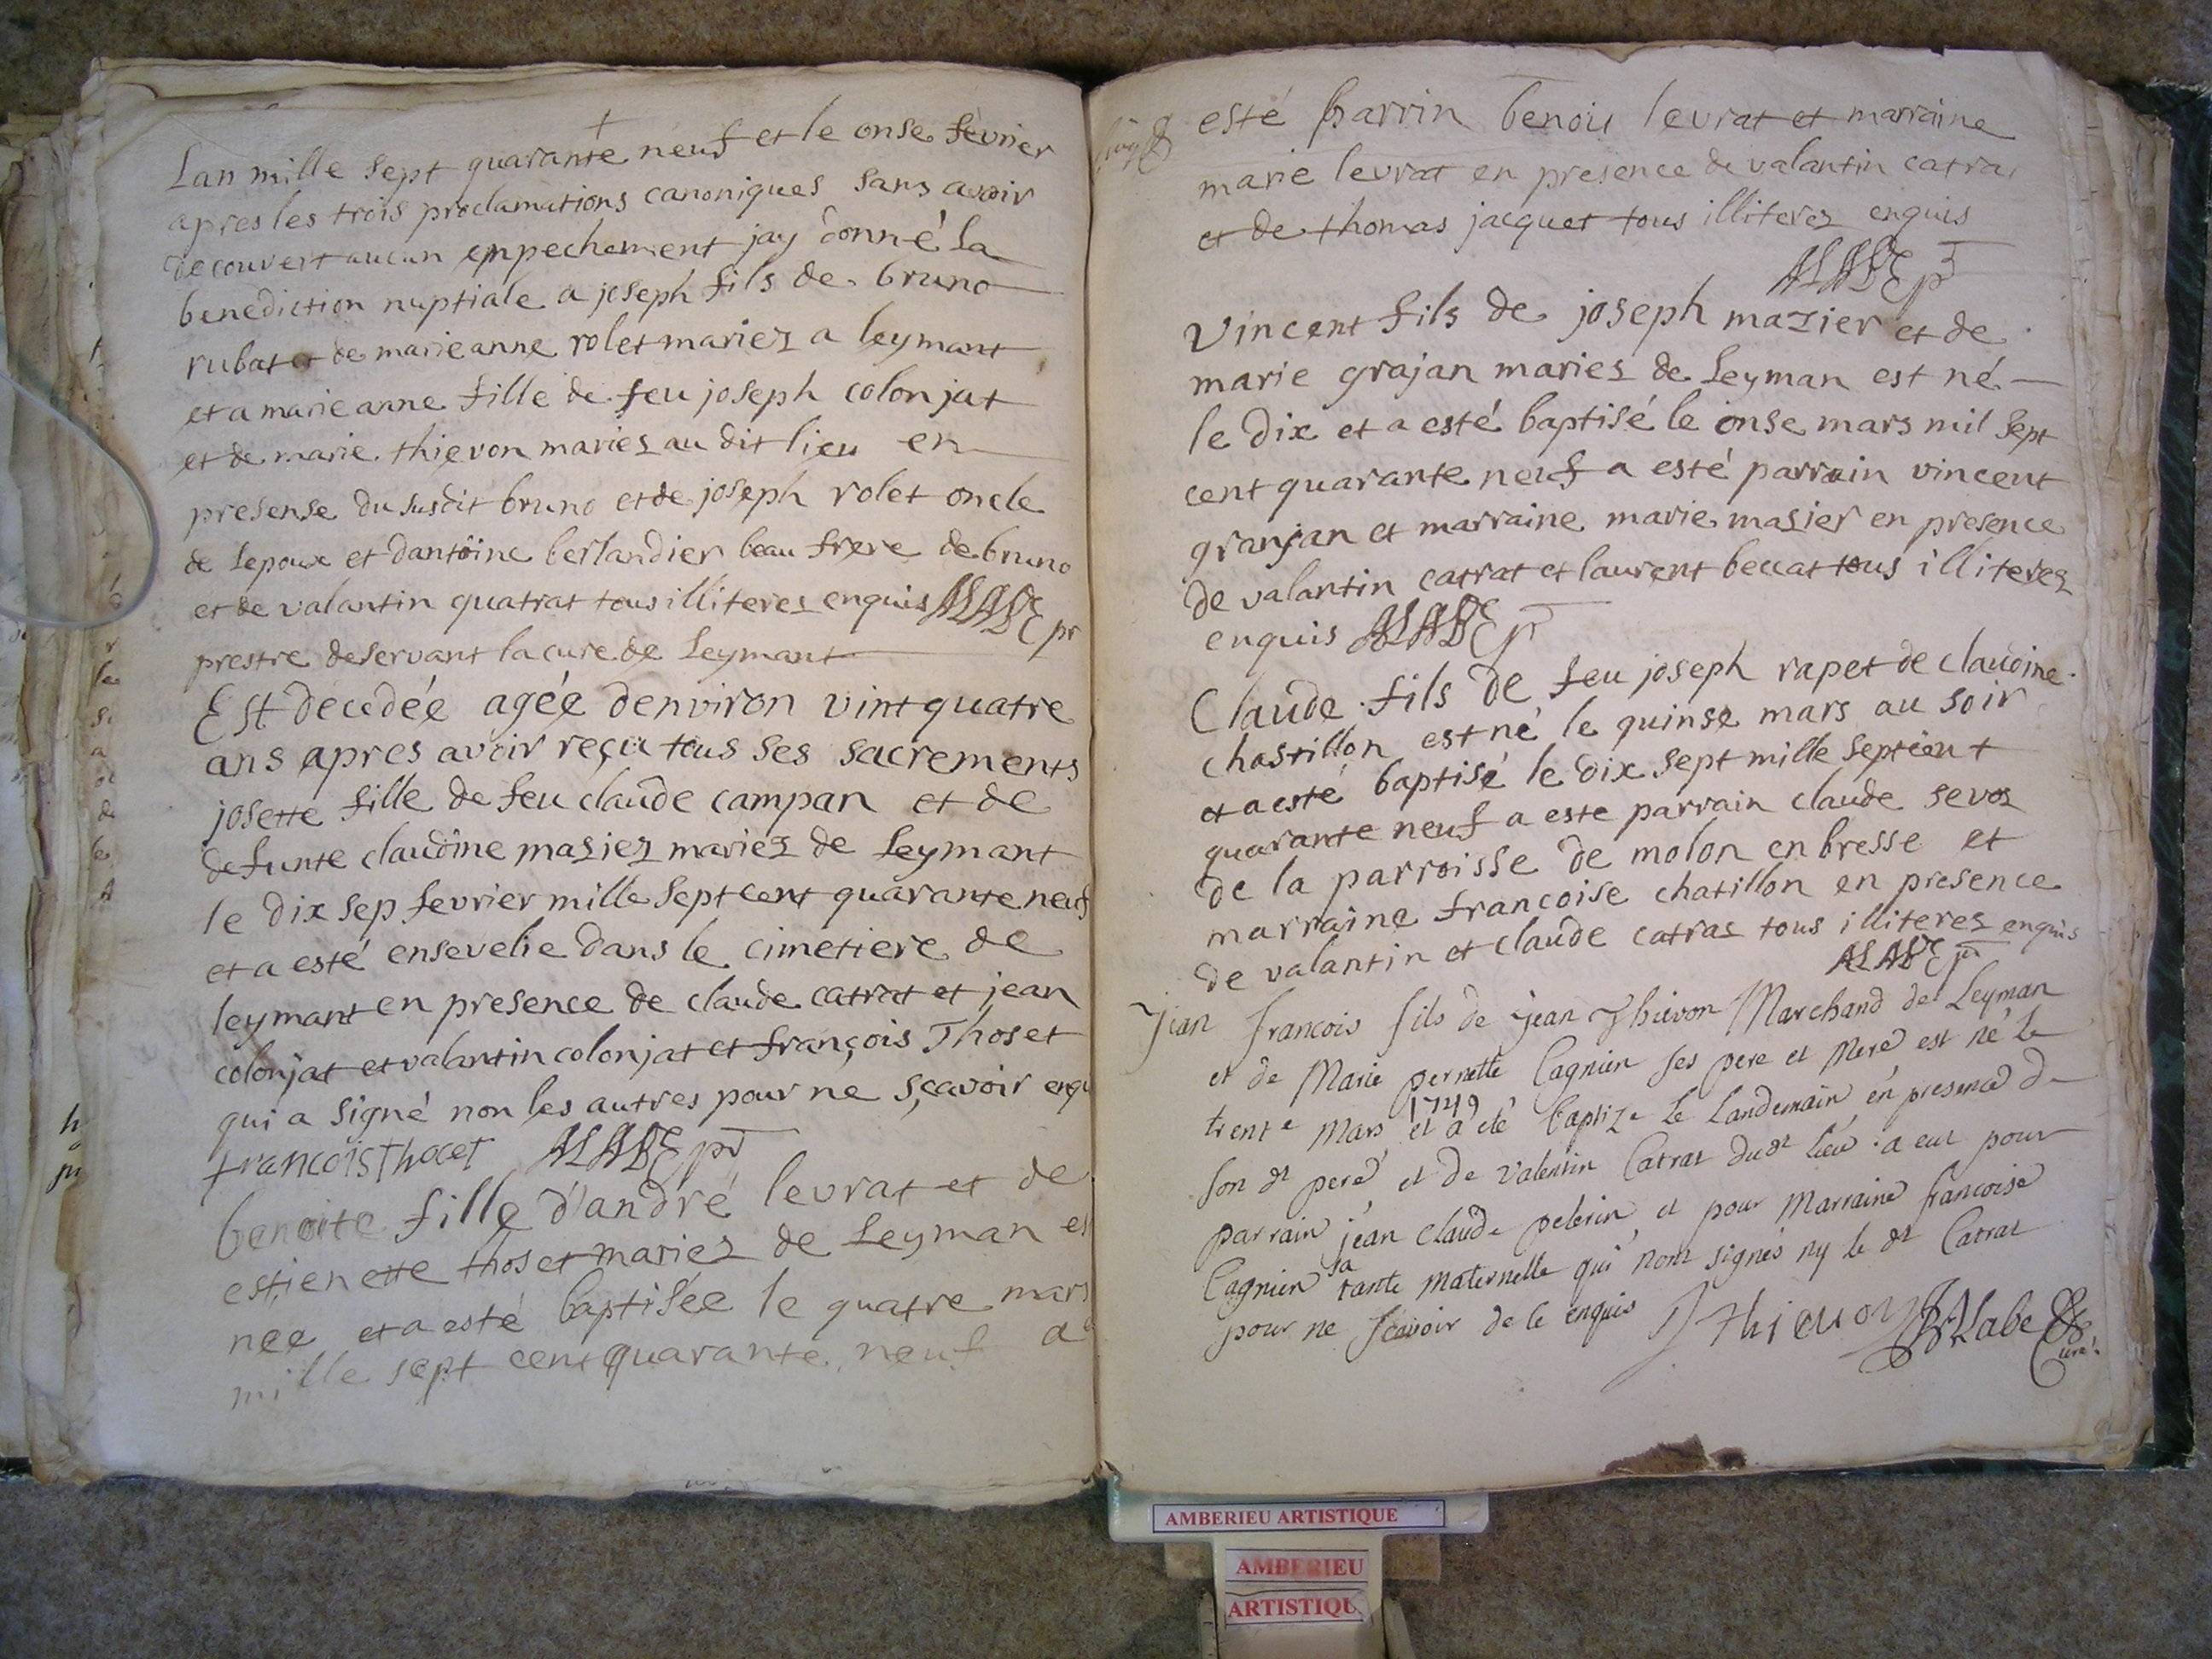 Lan mille sept quarante neuf et le onse fevrier
apres les trois proclamations canoniques sans avoir
decouvert aucun enpechement jay donné la
benediction nuptiale a joseph fils de bruno
rubat et de marie anne rolet mariez a leymant
et a marie anne fille de feu joseph colonjat
et de marie thievon mariez au dit lieu en
presense du susdit bruno et de joseph rolet oncle
de lepoux et dantoine berlandier beau frere de bruno
et de valantin quatrat tous illiterez enquis ALABE pr
prestre deservant la cure de Leymant
Est decedée agée denviron vint quatre
ans apres avoir reçu tous ses sacrements
josette fille de feu claude campan et de
defunte claudine maziez mariez de Leymant
le dix sep fevrier mille sept cent quarante neuf
et a esté ensevelie dans le cimetiere de
leymant en presence de claude catrat et jean
colonjat et valantin colonjat et françois Thoset
qui a signé non les autres pour ne sçavoir enqu
francois Thocet ALABE pr
benoite fille d'andré levrat et de
estienette thoset mariez de Leyman es
née et a esté baptisée le quatre mars
mille sept cent quarante neuf a
esté parrin benoit levrat et marraine
marie levrat en presence de valantin catra
et de thomas jacquet tous illiterez enquis
ALABE pr
Vincent fils de joseph mazier et de
marie grajan mariez de Leyman est né
le dix et a esté baptisé le onse mars mil sept
cent quarante neuf a esté parrain vincent
granjan et marraine marie masier en presence
de valantin catrat et laurent beccat tous illiterez
enquis ALABE pr
Claude fils de feu joseph rapet de claudine
chastillon est né le quinse mars au soir
et a esté baptisé le dix sept mille septcent
quarante neuf a este parrain claude sevoz
de la parroisse de molon en bresse et
marraine francoise chatillon en presence
de valantin et claude catraz tous illiterez enquis
ALABE pr
Jean francois fils de jean Thievon Marchand de Leyman
et de Marie pernette Cagnien ses pere et Mere est né le
trente Mars 1749 et a eté baptize le Landemain en presence de
son dt pere et de Valentin Catrat dudt lieu a eut pour
parrain jean Claude pelerin et pour Marraine francoise
Cagnien sa tante maternelle qui nont signés ny le dt Catrat
pour ne scavoir de le enquis J thievon Labe
Curé
AMBERIEU ARTISTIQUE
AMBERIEU
ARTISTIQU